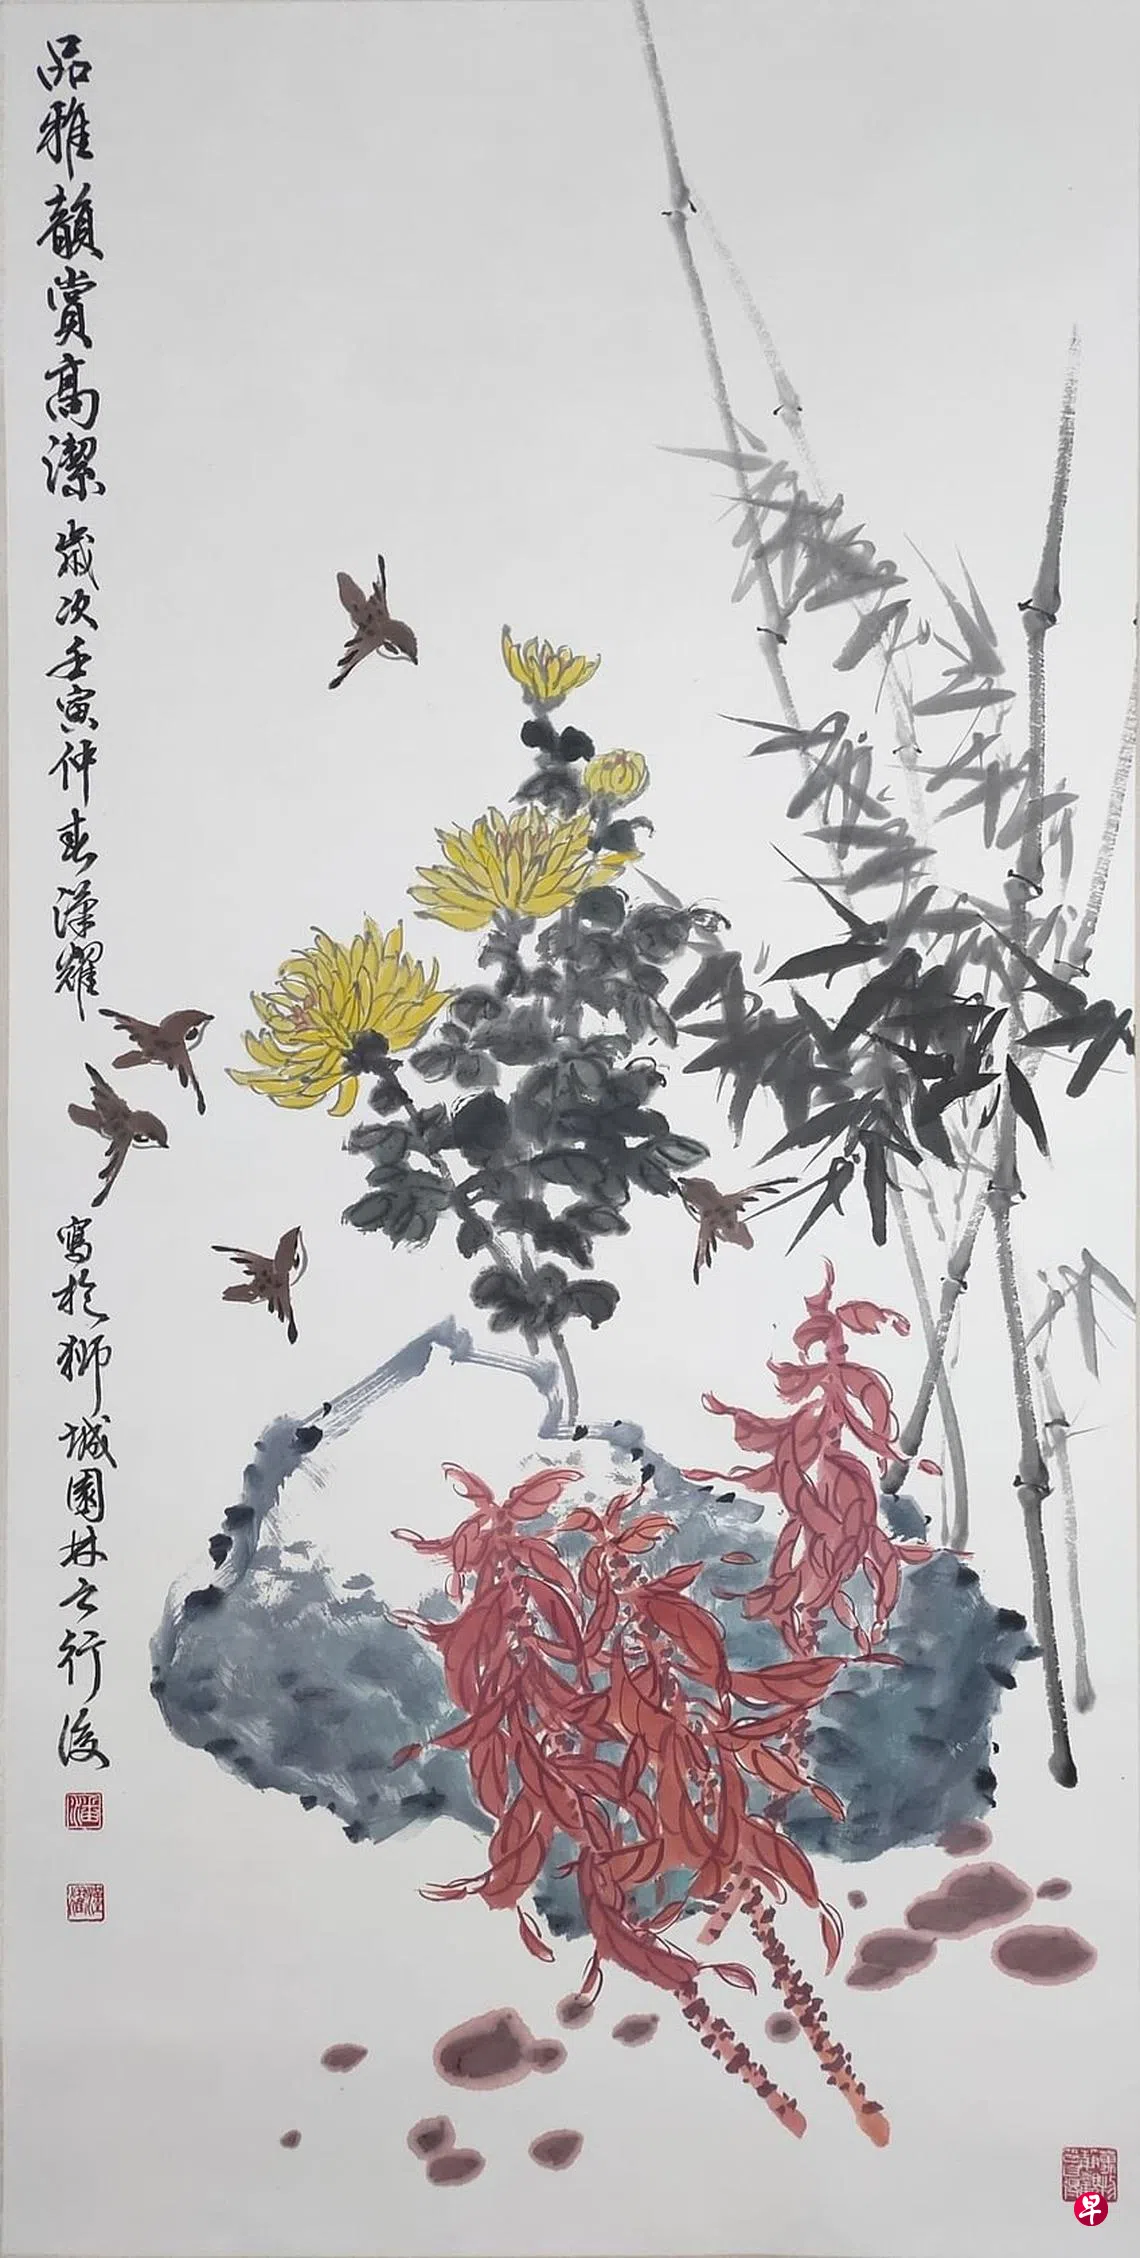 品雅韻賞高潔 歲次壬寅仲春漢耀
寫於獅城園林之行後
早